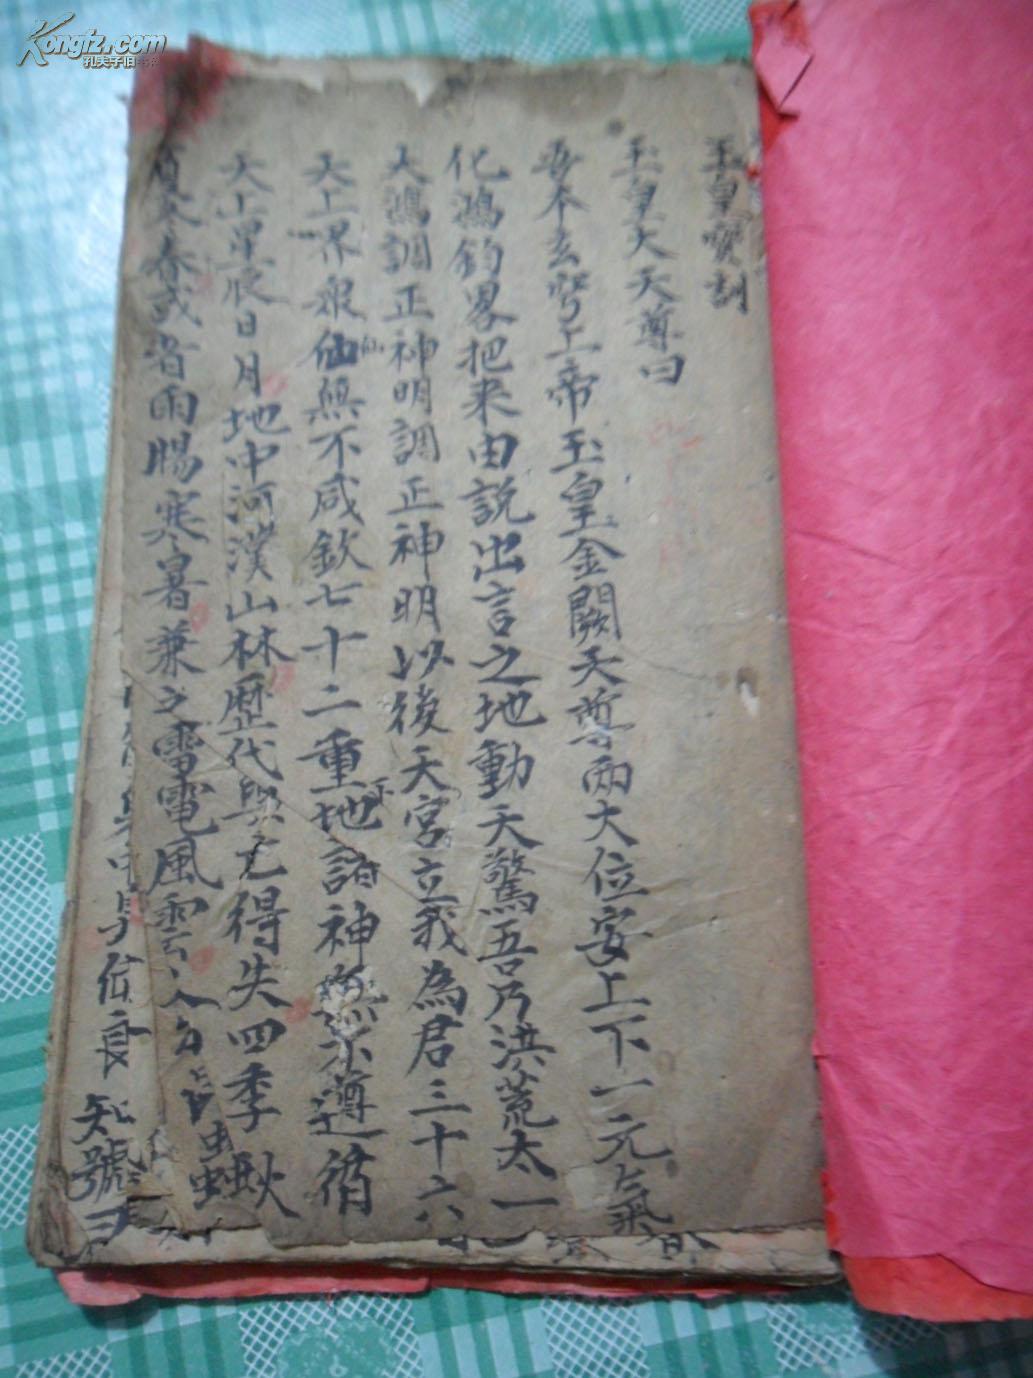 Kongfz.com
孔夫子旧书网
玉皇寶訓
玉皇大天尊曰
吾本玄穹上帝玉皇金闕天尊兩大位安上下一元氣
化鴻鈞畧把来由説出言之地動天驚吾乃洪荒太一
大鴻調正神明調正神明以後天宮立我為君三十六
天上界衆仙仙無不咸欽七十二重地下諸神無不遵循
天上星辰日月地中河漢山林歷代興亡得失四季秋
夏冬春或者雨賜寒暑兼之雷電風雲
良
知號